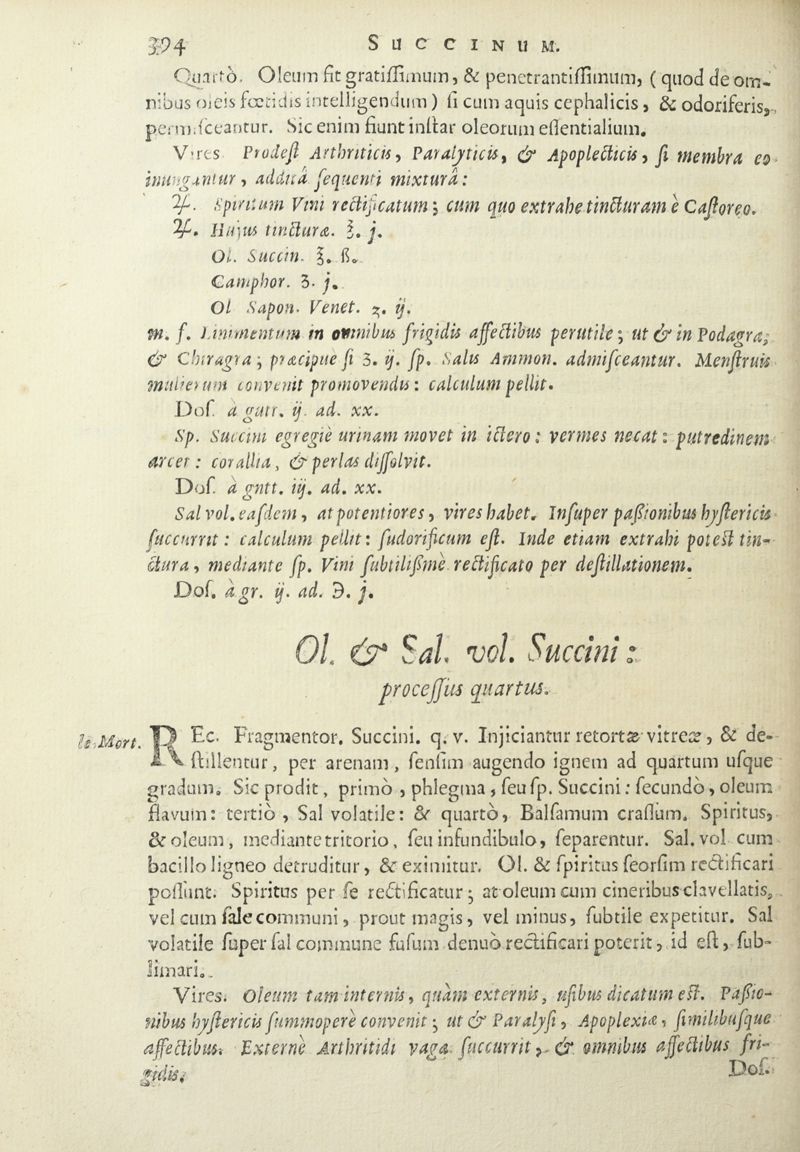 394 SUCCINUM.
Quartò. Oleum fit gratiſſimum, & penetrantiſſimum, (quod de om-
nibus oleis fœtidis intelligendum) ſi cum aquis cephalicis, & odoriferis,
permiſceantur. Sic enim fiunt inſtar oleorum eſſentialium.
Vires. Prodeſt Arthriticis, Paralyticis, & Apoplecticis, ſi membra eo
inungantur, additâ ſequenti mixturâ:
♃. Spiritum Vini rectificatum; cum quo extrahe tincturam è Caſtoreo.
♃. Hujus tincturæ. ℥. j.
Ol. Succin. ℥. ß.
Camphor. ʒ. j.
Ol Sapon. Venet. ʒ. ij.
m. f. Linimentum in omnibus frigidis affectibus perutile; ut & in Podagra,
& Chiragra; præcipue ſi ʒ. ij. ſp. Salis Ammon. admiſceantur. Menſtruis
mulierum convenit promovendis: calculum pellit.
Doſ. à gutt. ij. ad. xx.
Sp. Succini egregiè urinam movet in ictero: vermes necat: putredinem
arcet: corallia, & perlas diſſolvit.
Doſ. à gntt. iij. ad. xx.
Sal vol. eaſdem, at potentiores, vires habet. Inſuper paſſionibus hyſtericis
ſuccurrit: calculum pellit: ſudorificum eſt. Inde etiam extrahi poteſt tin-
ctura, mediante ſp. Vini ſubtiliſſimè rectificato per deſtillationem.
Doſ. à gr. ij. ad. ℈. j.
Ol. & Sal. vol. Succini:
proceſſus quartus.
le Mort. REc. Fragmentor. Succini. q. v. Injiciantur retortæ vitreæ, & de-
ſtillentur, per arenam, ſenſim augendo ignem ad quartum uſque
gradum. Sic prodit, primò, phlegma, ſeu ſp. Succini: ſecundò, oleum
flavum: tertiò, Sal volatile: & quartò, Balſamum craſſum. Spiritus,
& oleum, mediante tritorio, ſeu infundibulo, ſeparentur. Sal. vol cum
bacillo ligneo detruditur, & eximitur. Ol. & ſpiritus ſeorſim rectificari
poſſunt. Spiritus per ſe rectificatur; at oleum cum cineribus clavellatis,
vel cum ſale communi, prout magis, vel minus, ſubtile expetitur. Sal
volatile ſuper ſal commune fuſum denuò rectificari poterit, id eſt, ſub-
limari.
Vires. Oleum tam internis, quàm externis, uſibus dicatum eſt. Paſſio-
nibus hyſtericis ſummopere convenit; ut & Paralyſi, Apoplexiæ, ſimilibuſque
affectibus. Externè Arthritidi vagæ ſuccurrit, & omnibus affectibus fri-
gidis.
Doſ.